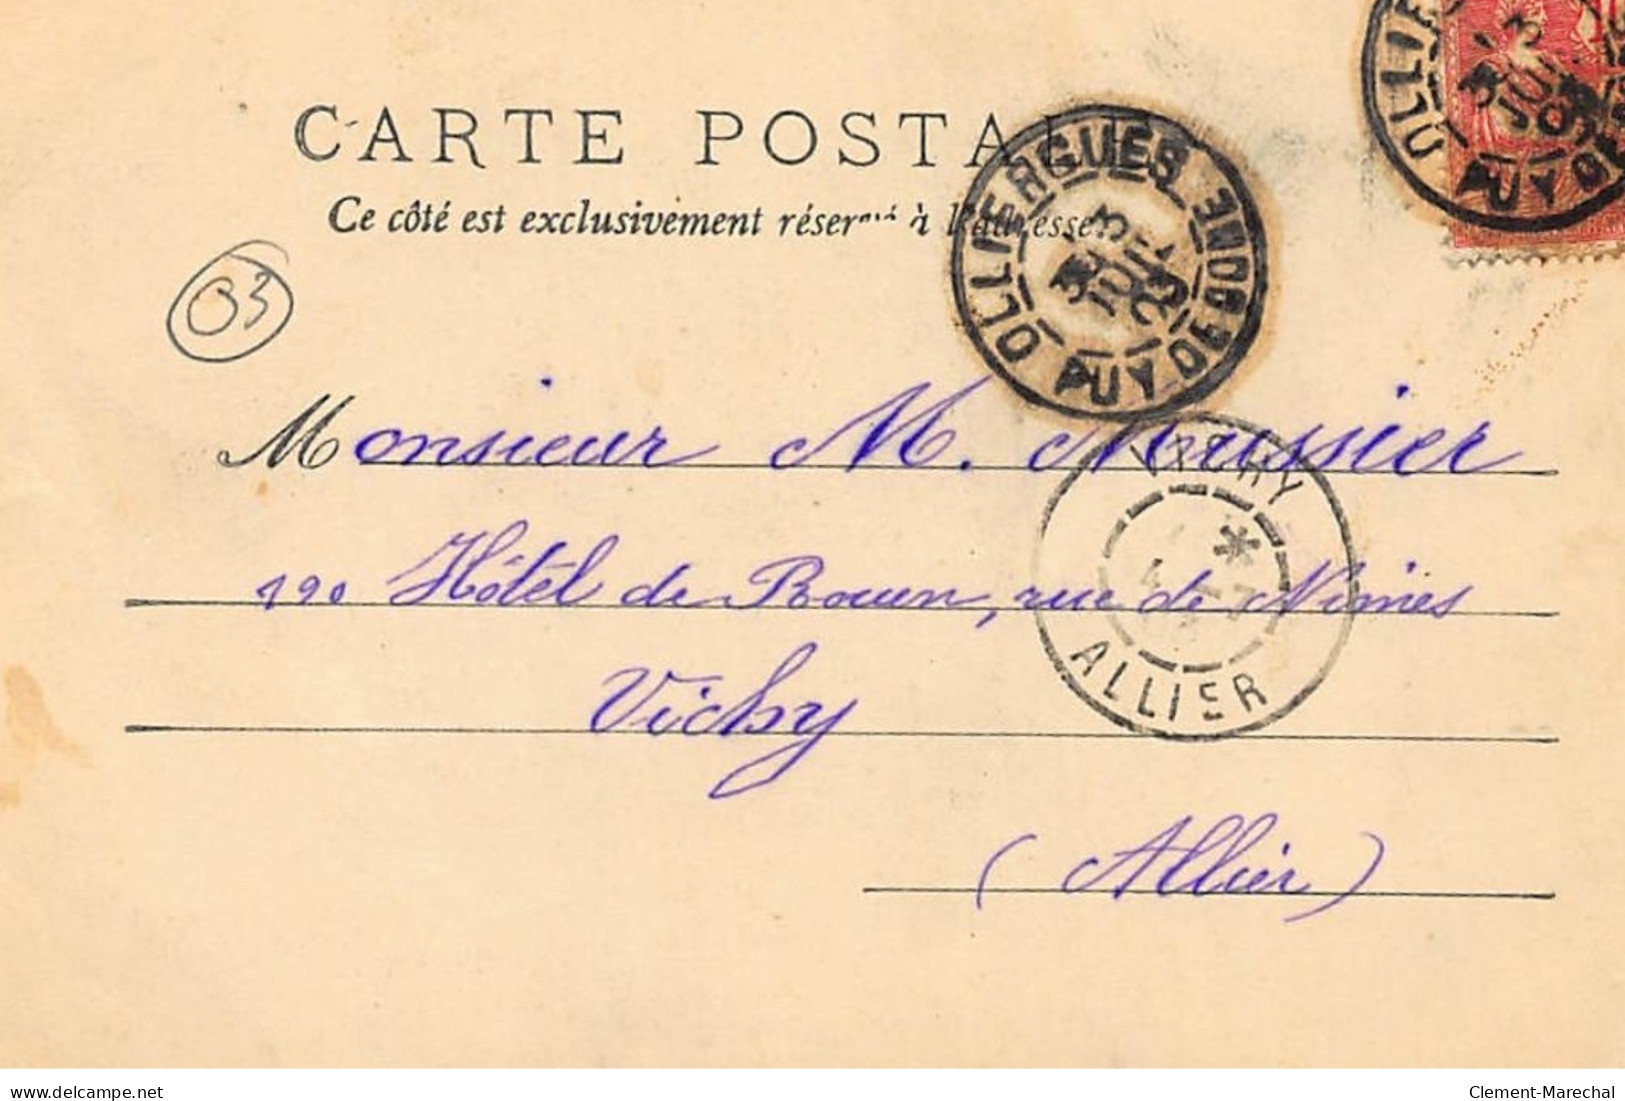 CARTE POSTALE
Ce côté est exclusivement réservé à l'adresse
OLLIERGUES PUY DE DOME
3E 13 JUIL 03
OLLIE
PUY DE
03
Monsieur M. Mussier
190 Hôtel de Rouen, rue de Nîmes
VICHY ALLIER
Vichy
(Allier)
delcampe.net
Clement-Marechal